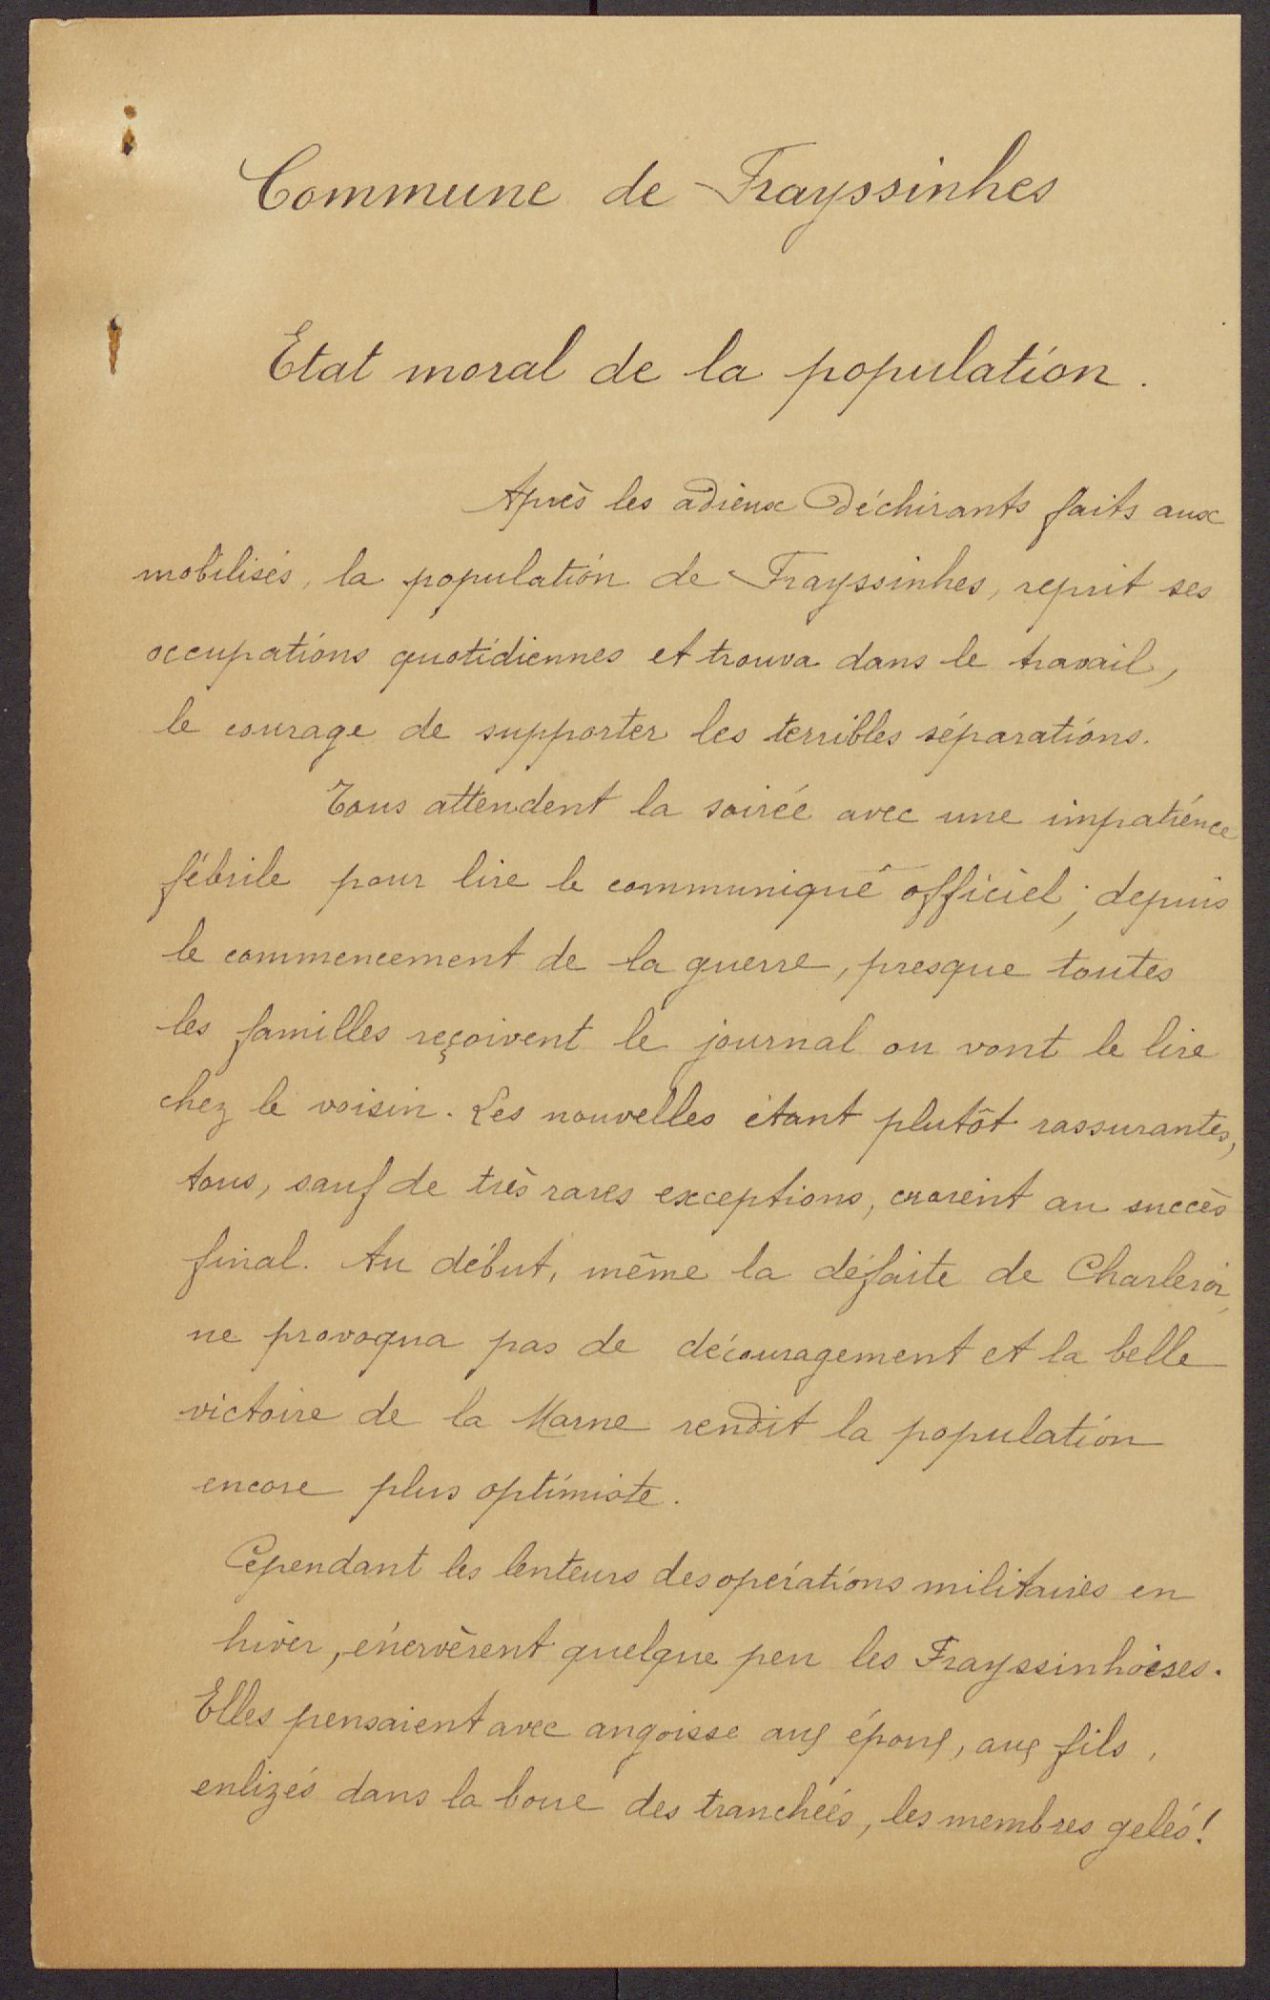 Commune de Frayssinhes
Etat moral de la population.
Après les adieux déchirants faits aux
mobilisés, la population de Frayssinhes, reprit ses
occupations quotidiennes et trouva dans le travail,
le courage de supporter les terribles séparations.
Tous attendent la soirée avec une impatience
fébrile pour lire le communiqué officiel ; depuis
le commencement de la guerre, presque toutes
les familles reçoivent le journal ou vont le lire
chez le voisin. Les nouvelles étant plutôt rassurantes,
tous, sauf de très rares exceptions, croient au succès
final. Au début, même la défaite de Charleroi,
ne provoqua pas de découragement et la belle
victoire de la Marne rendit la population
encore plus optimiste.
Cependant les lenteurs des opérations militaires en
hiver, énervèrent quelque peu les Frayssinhoises.
Elles pensaient avec angoisse aux époux, aux fils,
enlizés dans la boue des tranchées, les membres gelés !